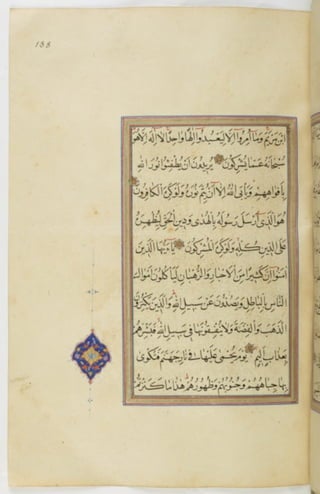 138
ابْنَ مَرْيَمَ وَمَا أُمِرُوا إِلَّا لِيَعْبُدُوا إِلَهًا وَاحِدًا لَا إِلَهَ إِلَّا هُوَ
سُبْحَانَهُ عَمَّا يُشْرِكُونَ يُرِيدُونَ أَنْ يُطْفِئُوا نُورَ اللَّهِ
بِأَفْوَاهِهِمْ وَيَأْبَى اللَّهُ إِلَّا أَنْ يُتِمَّ نُورَهُ وَلَوْ كَرِهَ الْكَافِرُونَ
هُوَ الَّذِي أَرْسَلَ رَسُولَهُ بِالْهُدَى وَدِينِ الْحَقِّ لِيُظْهِرَهُ
عَلَى الدِّينِ كُلِّهِ وَلَوْ كَرِهَ الْمُشْرِكُونَ يَا أَيُّهَا الَّذِينَ
آمَنُوا إِنَّ كَثِيرًا مِنَ الْأَحْبَارِ وَالرُّهْبَانِ لَيَأْكُلُونَ أَمْوَالَ
النَّاسِ بِالْبَاطِلِ وَيَصُدُّونَ عَنْ سَبِيلِ اللَّهِ وَالَّذِينَ يَكْنِزُونَ
الذَّهَبَ وَالْفِضَّةَ وَلَا يُنْفِقُونَهَا فِي سَبِيلِ اللَّهِ فَبَشِّرْهُمْ
بِعَذَابٍ أَلِيمٍ يَوْمَ يُحْمَى عَلَيْهَا فِي نَارِ جَهَنَّمَ فَتُكْوَى
بِهَا جِبَاهُهُمْ وَجُنُوبُهُمْ وَظُهُورُهُمْ هَذَا مَا كَنَزْتُمْ